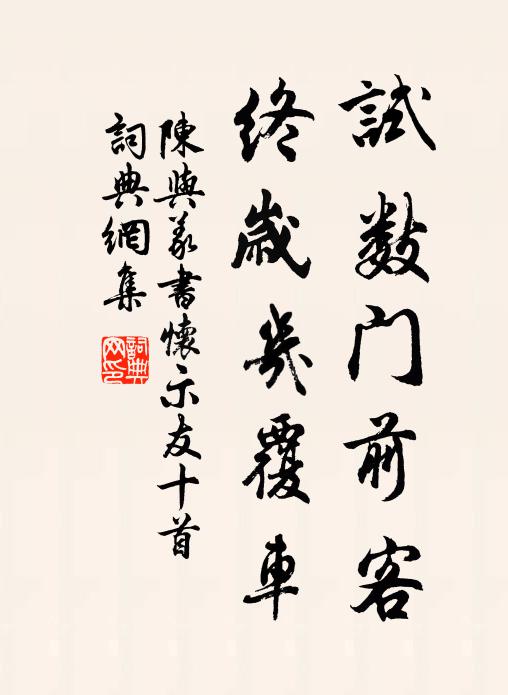 試數門前客
終歲幾覆車
陳與義書懷示友十首
詞典網集
詞典網印